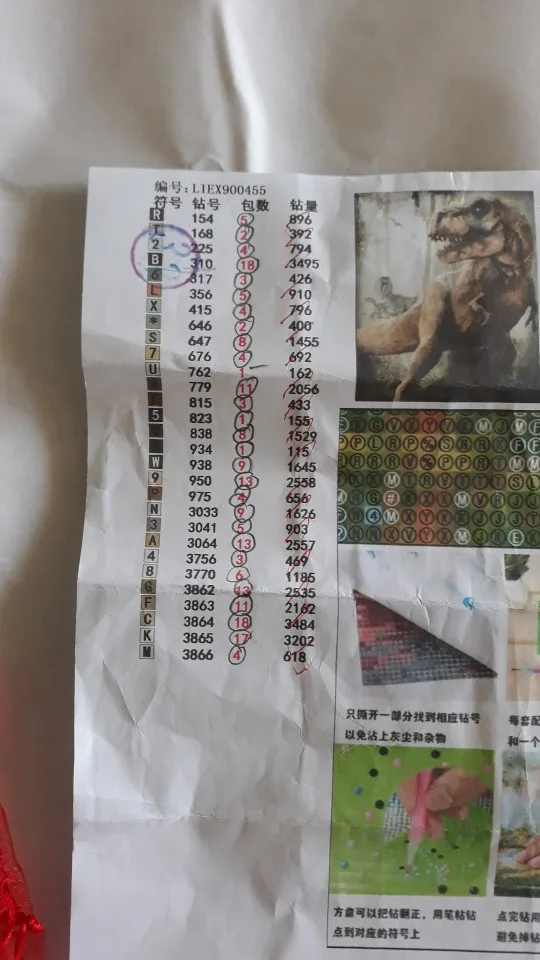 编号:LIEX900455
符号 钻号 包数 钻量
R 154 5 896
I 168 2 392
2 225 4 794
B 310 18 3495
6 317 3 426
L 356 5 910
X 415 4 796
* 646 2 400
S 647 8 1455
7 676 4 692
U 762 1 162
779 11 2056
815 3 433
5 823 1 155
838 8 1529
934 1 115
W 938 9 1645
9 950 13 2558
975 4 656
N 3033 9 1626
3 3041 5 903
A 3064 13 2557
4 3756 3 469
8 3770 6 1185
G 3862 13 2535
F 3863 11 2162
C 3864 18 3484
K 3865 17 3202
M 3866 4 618
只撕开一部分找到相应钻号
以免沾上灰尘和杂物
每套配
和一个
方盘可以把钻翻正，用笔粘钻
点到对应的符号上
点完钻用
避免掉钻